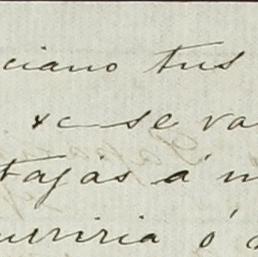 ciano tus
&c se va
tajas á m
urriria ó